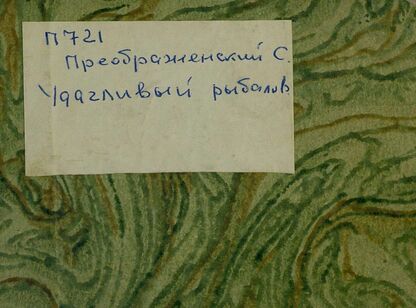 П721
Преображенский С.
Удачливый рыболов